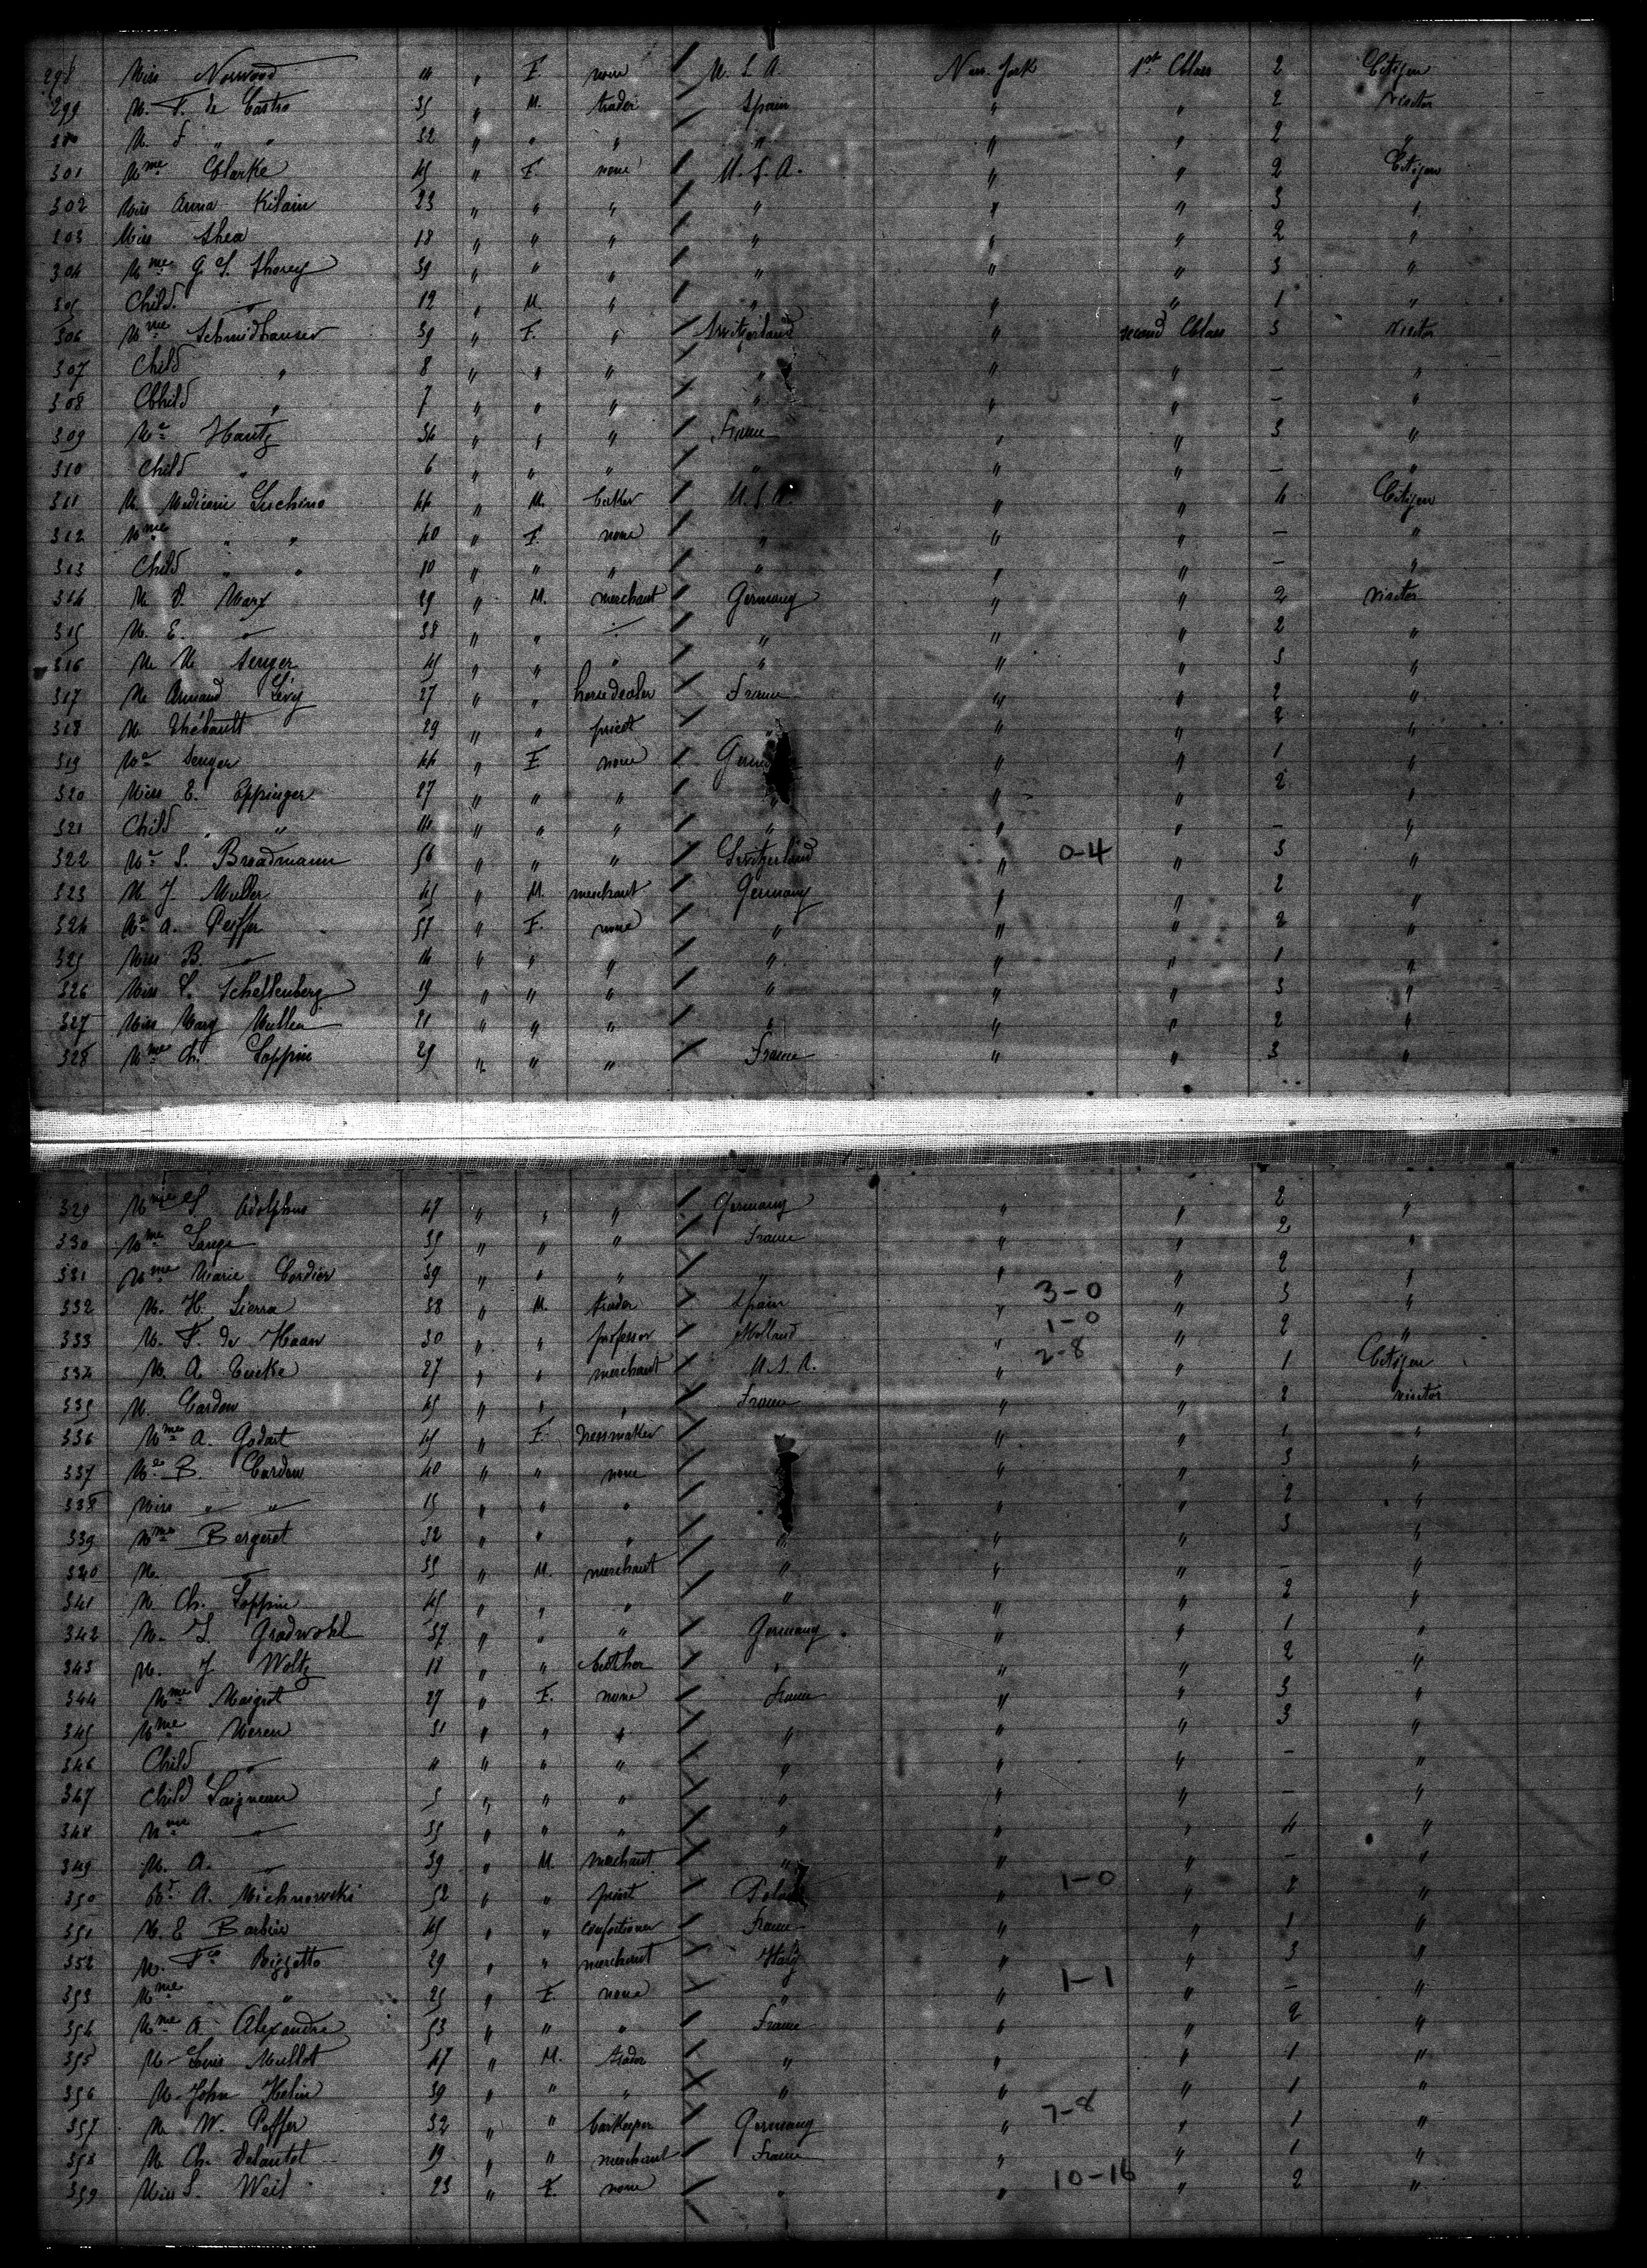 298 Miss Norwood 14 " F. none U. S. A. New-York 1st Class 2 Citizen
299 M. F. de Castro 35 " M. trader Spain " " 2 visitor
300 M. F " " 32 " " " " " " 2 "
301 Mme Clarke 45 " F. none U. S. A. " " 2 Citizen
302 Miss Anna Kilain 23 " " " " " " 3 "
303 Miss Shea 18 " " " " " " 2 "
304 Mme G. S. Thorey 39 " " " " " " 3 "
305 Child " 12 " M. " " " " 1 "
306 Mme Schmidhauser 39 " F. " Switzerland " second Class 3 visitor
307 Child " 8 " " " " " " - "
308 Child " 7 " " " " " " - "
309 Me Hautz 34 " " " France " " 3 "
310 Child " 6 " " " " " " - "
311 M. Luchino 44 " M. U. S. A. " " 4 Citizen
312 Mme " " 40 " F. none " " " - "
313 Child " " 10 " " " " " " - "
314 M. D. Marx 29 " M. merchant Germany " " 2 visitor
315 M. E. " 38 " " " " " " 2 "
316 M. M. Senger 45 " " " " " " 3 "
317 M. Armand Lévy 27 " " horsedealer France " " 2 "
318 M. Thébault 29 " " priest " " " 2 "
319 Me Senger 44 " F. none Germ " " 1 "
320 Miss E. Eppinger 27 " " " " " " 2 "
321 Child " " 14 " " " " " " - "
322 Me S. Broadmann 56 " " " Switzerland " 0-4 " 3 "
323 M. J. Muller 45 " M. merchant Germany " " 2 "
324 Me A. Peiffer 51 " F. none " " " 2 "
325 Miss B. " 14 " " " " " " 1 "
326 Miss L. Schellenberg 19 " " " " " " 3 "
327 Miss Mary Muller 21 " " " " " " 2 "
328 Mme Ch. Loppin 29 " " " France " " 3 "
329 Mme S. Adolphus 47 " " " Germany " " 2 "
330 Mme Lange 35 " " " France " " 2 "
331 Mme Marie Cordier 39 " " " " " " 2 "
332 M. H. Sierra 38 " M. trader Spain " 3-0 " 3 "
333 M. F. de Haan 30 " " professor Holland " 1-0 " 2 "
334 M. A. Tueke 27 " " merchant U. S. A. " 2-8 " 1 Citizen
335 M. Cardon 45 " " " France " " 2 visitor
336 Mme A. Godart 45 " F. dressmaker " " 1 "
337 Me B. Cardon 40 " " none " " 3 "
338 Miss " " 15 " " " " " 2 "
339 Mme Bergeret 32 " " " " " " 3 "
340 M. " 35 " M. merchant " " " - "
341 M. Ch. Loppin 45 " " " " " " 2 "
342 M. L. Gradwohl 37 " " " Germany " " 1 "
343 M. J. Woltz 18 " " butcher " " " 2 "
344 Mme Maigrot 27 " F. none France " " 3 "
345 Mme Meren 31 " " " " " " 3 "
346 Child " " " " " " " " - "
347 Child Laigneau 5 " " " " " " - "
348 Mme " 35 " " " " " " 4 "
349 M. A. " 39 " M. merchant " " " - "
350 A. Michnowski 52 " " priest Poland " 1-0 " 2 "
351 M. E. Barbier 45 " " confectioner France " " 1 "
352 M. Fco Rizzetto 29 " " merchant Italy " " 3 "
353 Mme " 25 " F. none " " 1-1 " - "
354 Mme A. Alexandre 53 " " " France " " 2 "
355 M. Louis Mullot 47 " M. trader " " " 1 "
356 M. John Helin 39 " " " " " " 1 "
357 M. W. Peffer 32 " " barkeeper Germany " 7-8 " 1 "
358 M. Ch. Delautel 19 " " merchant France " " 1 "
359 Miss S. Weil 23 " F. none " " 10-16 " 2 "